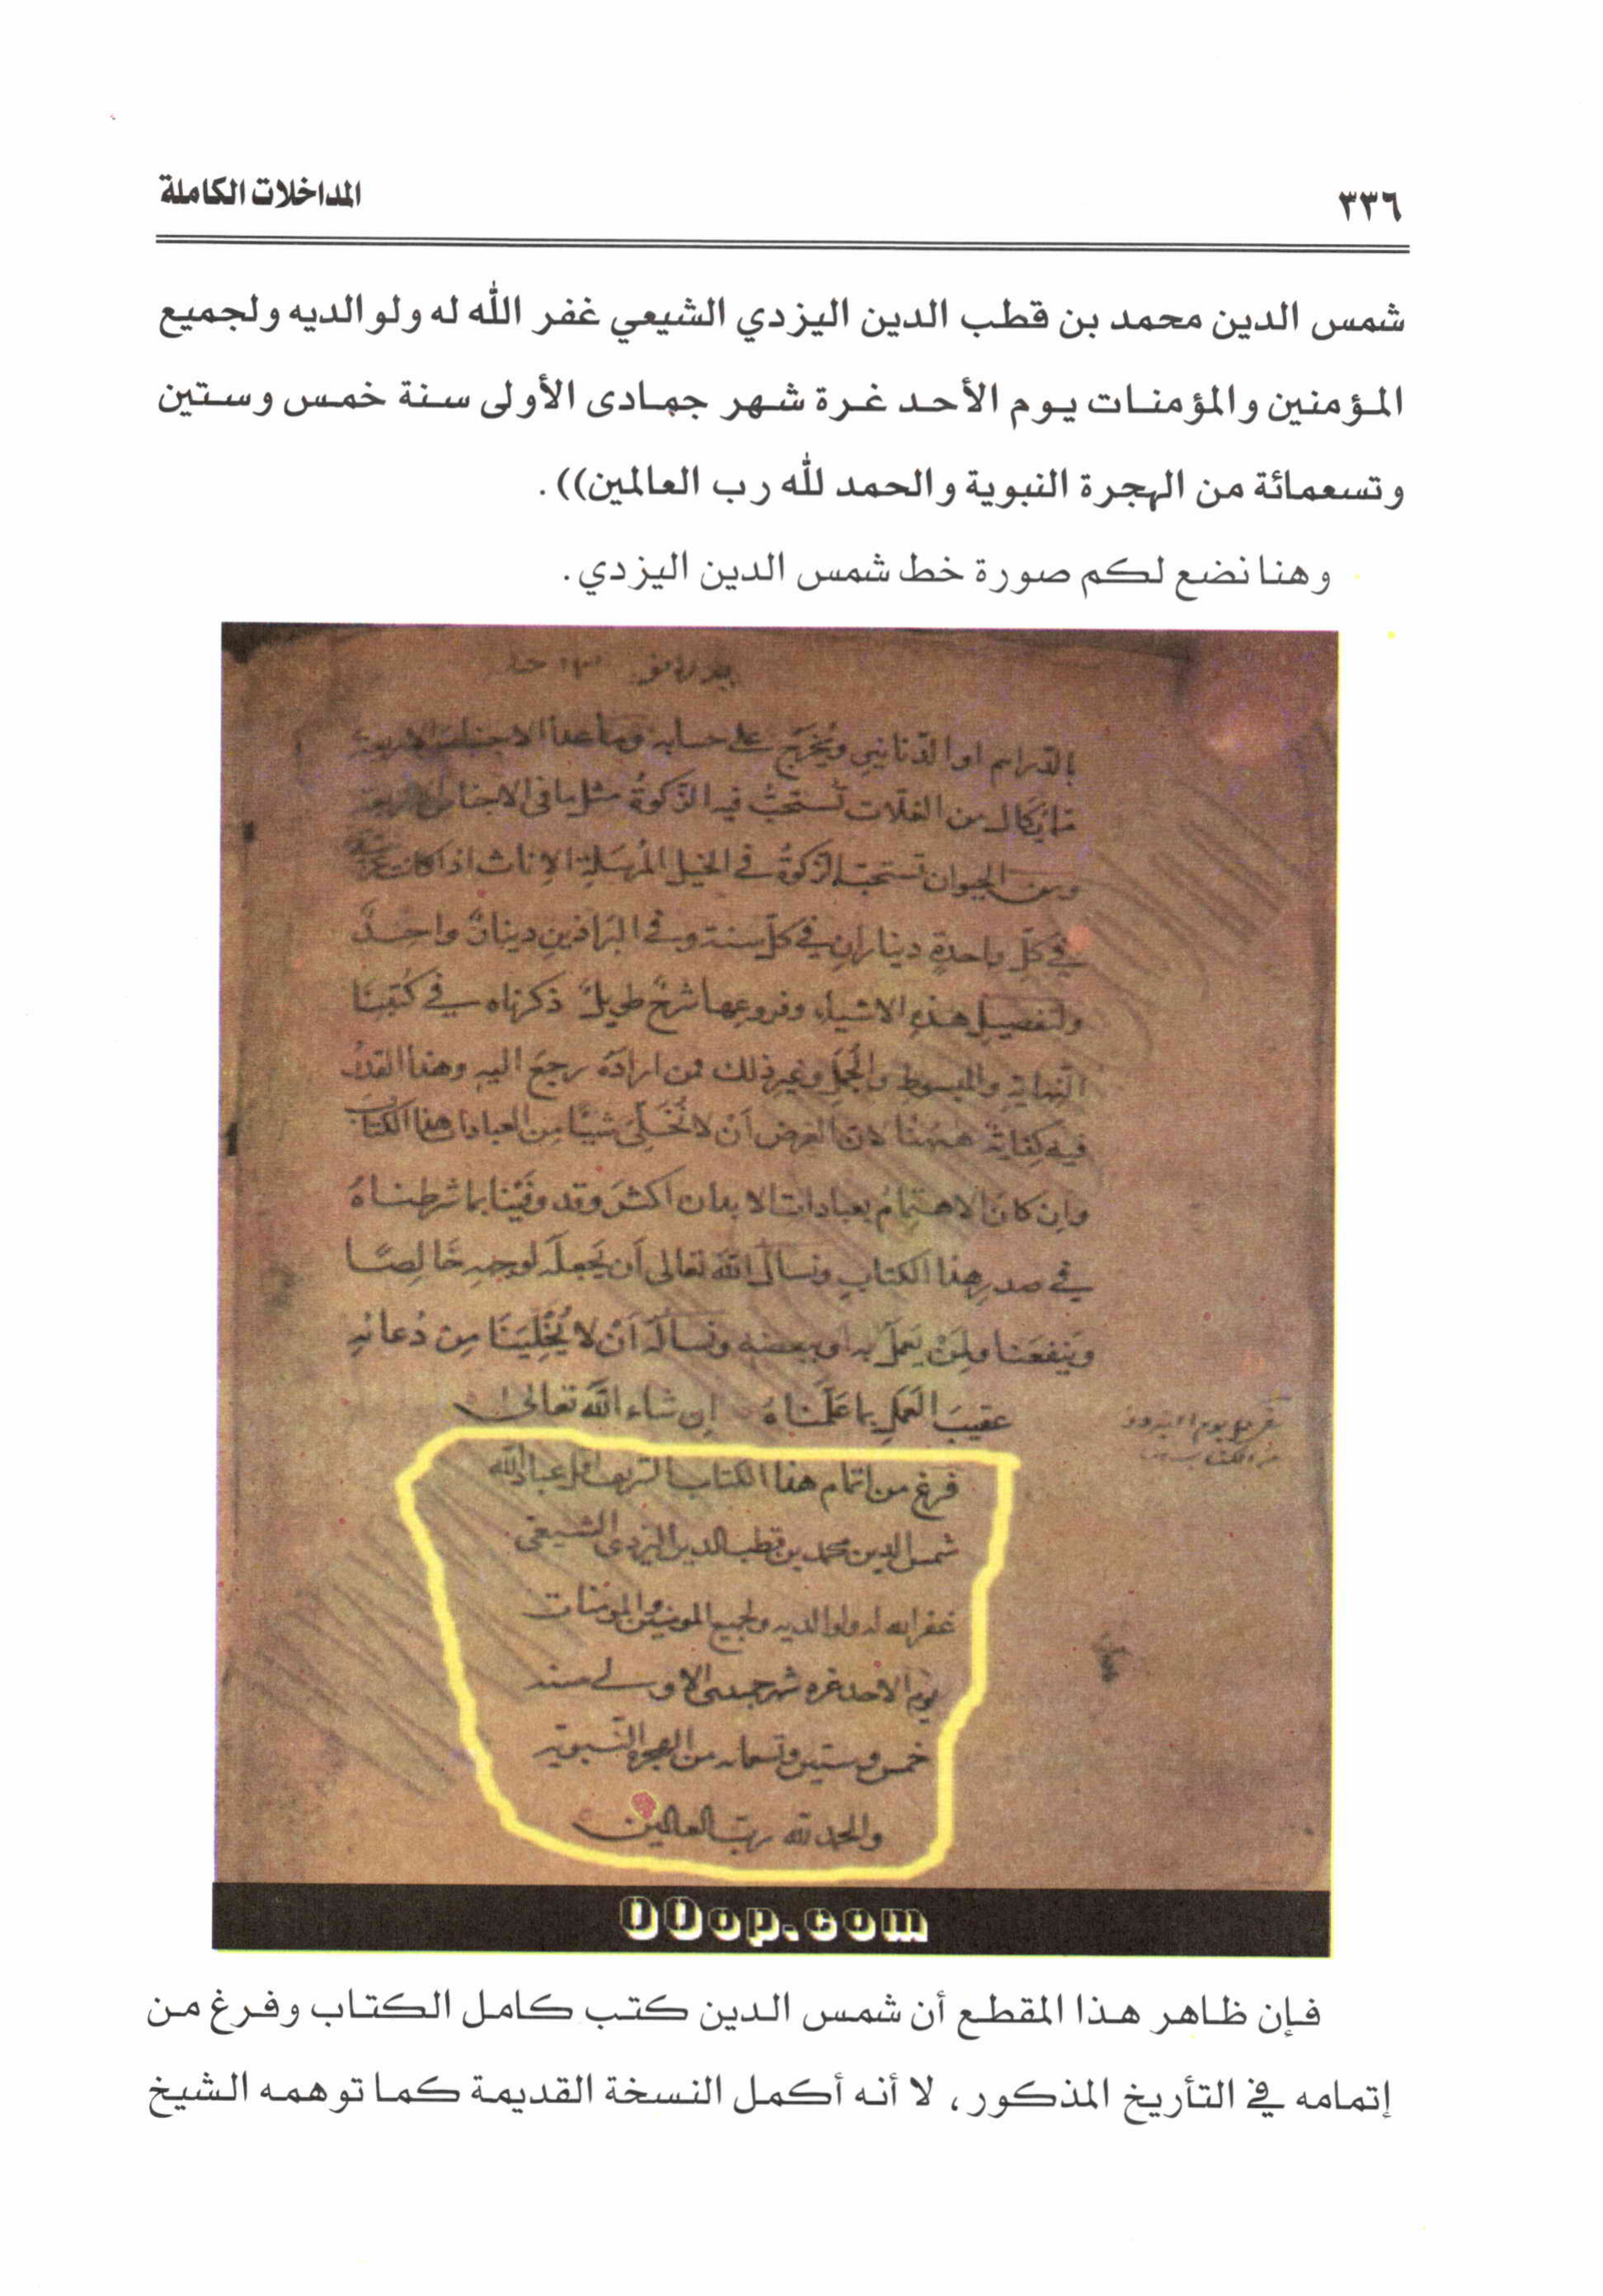 ٣٣٦
المداخلات الكاملة
شمس الدين محمد بن قطب الدين اليزدي الشيعي غفر الله له ولوالديه ولجميع
المؤمنين والمؤمنات يوم الأحد غرة شهر جمادى الأولى سنة خمس وستين
وتسعمائة من الهجرة النبوية والحمد لله رب العالمين)).
وهنا نضع لكم صورة خط شمس الدين اليزدي.
بالدراهم او الدّنانيرِ ويُخرَج على حسابه وما عدا الاجناس الاربعة
مما يُكال من الغلّات تُستحبُّ فيه الزكوةُ مثل ما فى الاجناس الاربعة
ومن الحيوان تستحبّ الزكوةُ في الخيل المُرسَلةِ الإناث اذا كانت
في كلّ واحدةٍ ديناران في كل سنة وفي البَراذينِ دينارٌ واحدٌ
ولتفصيل هذه الاشياء وفروعها شرحٌ طويلٌ ذكرناه في كُتُبِنَا
النهاية والمبسوط والجُمَل وغير ذلك فمن ارادَهُ رجعَ اليهِ وهذا القدرُ
فيه كفايةٌ ههنا لان الغرض اَنْ لا نُخَلّى شيئًا من العبادات هذا الكتاب
وان كان الاهتمامُ بعبادات الابدان اكثرَ وقد وفَّيْنا بما شرطناهُ
في صدرِ هذا الكتابِ ونسأل اللّهَ تعالى اَن يَجعلَه لوجهِهِ خَالِصًا
وَينفعَنا ومَنْ يَعملُ به او ببعضه ونَسألُهُ اَنْ لا يُخْلِيَنَا مِن دُعائِهِ
عقيبَ العَمَلِ بما عَمَلناهُ إن شاء اللّه تعالى
فرغ من اتمام هذا الكتاب الشريف اقل عباد الله
شمس الدين محمد بن قطب الدين اليزدى الشيعى
غفر الله له ولوالديه ولجميع المومنين والمومنات
يوم الاحد غره شهر جمدى الاولى سنه
خمس وستين وتسعمائه من الهجرة النّبوية
والحمد لله ربّ العالمين
00op.com
فإن ظاهر هذا المقطع أن شمس الدين كتب كامل الكتاب وفرغ من
إتمامه في التأريخ المذكور، لا أنه أكمل النسخة القديمة كما توهمه الشيخ